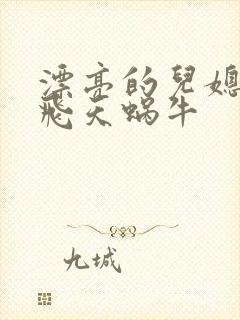 漂亮的兒媳
飛天蝸牛
九城